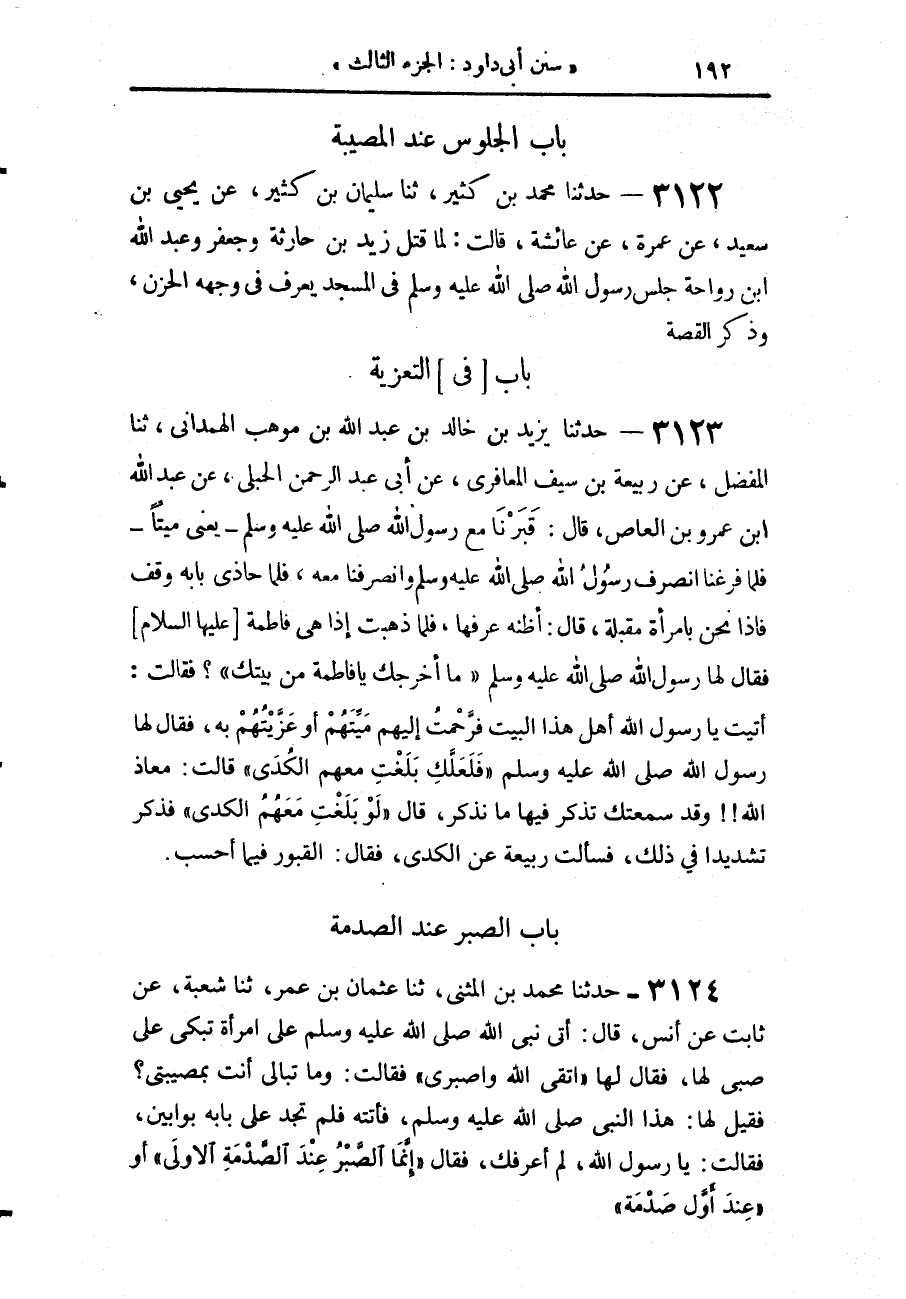 ١٩٢ « سنن أبى داود : الجزء الثالث »
باب الجلوس عند المصيبة
٣١٢٢ — حدثنا محمد بن كثير ، ثنا سليمان بن كثير ، عن يحيى بن
سعيد ، عن عمرة ، عن عائشة ، قالت : لما قتل زيد بن حارثة وجعفر وعبد الله
ابن رواحة جلس رسول الله صلى الله عليه وسلم فى المسجد يعرف فى وجهه الحزن ،
وذكر القصة
باب [ فى ] التعزية
٣١٢٣ — حدثنا يزيد بن خالد بن عبد الله بن موهب الهمدانى ، ثنا
المفضل ، عن ربيعة بن سيف المعافرى ، عن أبى عبد الرحمن الحبلى ، عن عبد الله
ابن عمرو بن العاص ، قال : قَبَرْنَا مع رسول الله صلى الله عليه وسلم ـ يعنى ميتاً ـ
فلما فرغنا انصرف رسُولُ الله صلى الله عليه وسلم وانصرفنا معه ، فلما حاذى بابه وقف
فاذا نحن بامرأة مقبلة ، قال : أظنه عرفها ، فلما ذهبت إذا هى فاطمة [عليها السلام]
فقال لها رسول الله صلى الله عليه وسلم « ما أخرجك يافاطمة من بيتك» ؟ فقالت :
أتيت يا رسول الله أهل هذا البيت فرَّحْمتُ إليهم مَيِّتَهُمْ أو عَزَّيْتُهُمْ به، فقال لها
رسول الله صلى الله عليه وسلم «فَلَعَلَّكِ بَلَغْتِ معهم الكُدَى» قالت: معاذ
الله!! وقد سمعتك تذكر فيها ما نذكر، قال «لَوْ بَلَغْتِ مَعَهُمُ الكدى» فذكر
تشديدا في ذلك، فسألت ربيعة عن الكدى، فقال: القبور فيما أحسب.
باب الصبر عند الصدمة
٣١٢٤ ـ حدثنا محمد بن المثنى، ثنا عثمان بن عمر، ثنا شعبة، عن
ثابت عن أنس، قال: أتى نبى الله صلى الله عليه وسلم على امرأة تبكى على
صبى لها، فقال لها «اتقى الله واصبرى» فقالت: وما تبالى أنت بمصيبتى؟
فقيل لها: هذا النبى صلى الله عليه وسلم، فأتته فلم تجد على بابه بوابين،
فقالت: يا رسول الله، لم أعرفك، فقال «إِنَّمَا ٱلصَّبْرُ عِنْدَ ٱلصَّدْمَةِ ٱلاولَى» أو
«عِندَ أَوَّلِ صَدْمَة»